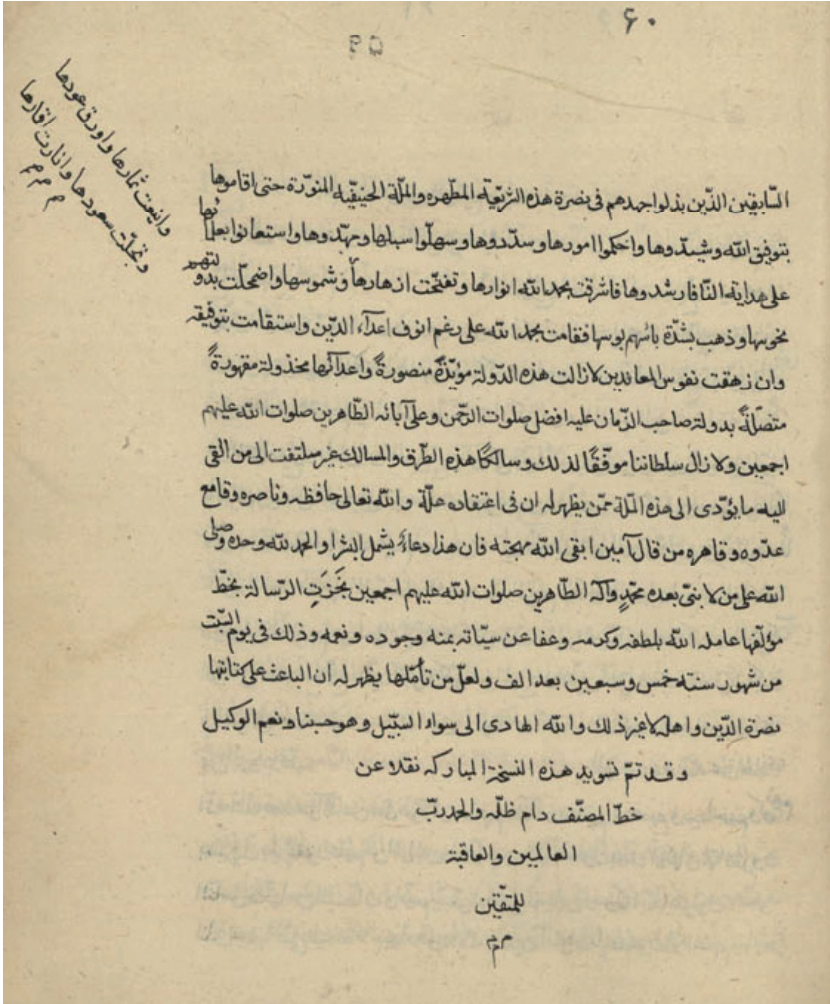 ۶۰
۵۹
السّابقین الذّین بذلوا جهدهم فی نصرة هذه الشریعّة المطهره والملّة الحنیفّیه المنوّرة حتی اقاموها
بتوفیق الله وشیّدوها واحکموا امورها وسدّدوها وسهلّوا سبلها ومهّدوها واستعانوا بعلمائها
علی هدایة النّاس فارشدوها فاشرقت بحمد الله انوارها وتفتحّت ازهارها وشموسها واضمحلّت بدولتهم
نحوسها وذهب بشدّة باسهم بوسها فقامت بحمد الله علی رغم انوف اعدآء الدّین واستقامت بتوفیقه
وان زهقت نفوس المعاندین لازالت هذه الدّولة مؤیّدةً منصورةً واعدآئها مخذولة مقهورةً
متصّلةً بدولة صاحب الزّمان علیه افضل صلوات الرّحمن وعلی آبائه الطّاهرین صلوات الله علیهم
اجمعین ولازال سلطاننا موفّقًا لذلک وسالکًا هذه الطّرق والمسالک غیر ملتفت الی من القی
الیه ما یؤدّی الی هذه الملّة ممّن یظهر له ان فی اعتقاده علّة والله تعالی حافظه وناصره وقامع
عدّوه وقاهره من قال آمین ابقی الله مهجته فان هذا دعاءٌ یشمل البشرا والحمد لله وحده وصلی
الله علی من لا نبیّ بعده محمّدٍ وآله الطّاهرین صلوات الله علیهم اجمعین نَجَزَتِ الرّسالة بخطّ
مؤلّفها عامله الله بلطفه وکرمه وعفا عن سیّئاته بمنه وجوده ونعمه وذلک فی یوم السّبت
من شهور سنته خمس وسبعین بعد الف ولعلّ من تأمّلها یظهر له ان الباعث علی کتابتها
نصرة الدّین واهله لا غیر ذلک والله الهادی الی سواء السبّیل وهو حسبنا ونعم الوکیل
وقد تمّ تسوید هذه النسخة المبارکه نقلا عن
خطّ المصنّف دام ظلّه والحمد ربّ
العالمین والعاقبة
للمتقّین
م م
واینعت ثمارها واورق عودها
وتجلّت سعودها وانارت اقمارها
م م م